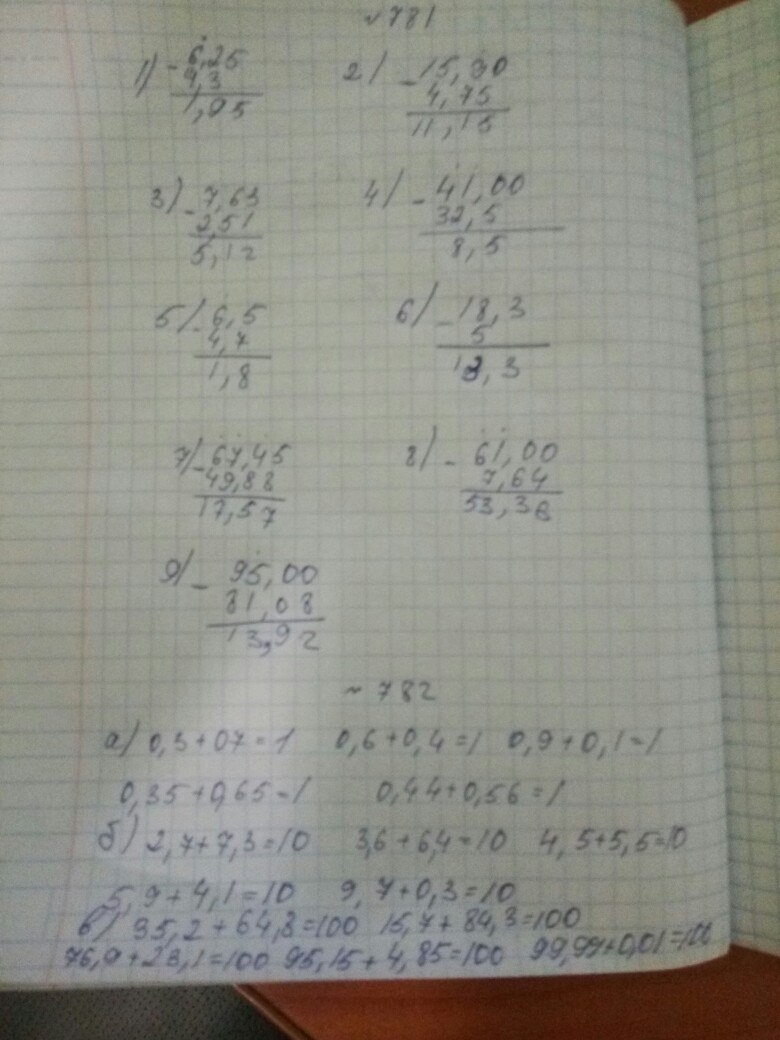 №781
1) - 6,25   2) - 15,90
4,3   4,75
1,95   11,15
3) - 7,63   4) - 41,00
2,51   32,5
5,12   8,5
5) - 6,5   6) - 18,3
4,7   5
1,8   13,3
7) - 67,45   8) - 61,00
49,88   7,64
17,57   53,36
9) - 95,00
81,08
13,92
~ 782
а) 0,3+07=1   0,6+0,4=1   0,9+0,1=1
0,35+0,65=1   0,44+0,56=1
б) 2,7+7,3=10   3,6+6,4=10   4,5+5,5=10
5,9+4,1=10   9,7+0,3=10
в) 35,2+64,8=100   15,7+84,3=100
76,9+23,1=100   95,15+4,85=100   99,99+0,01=100